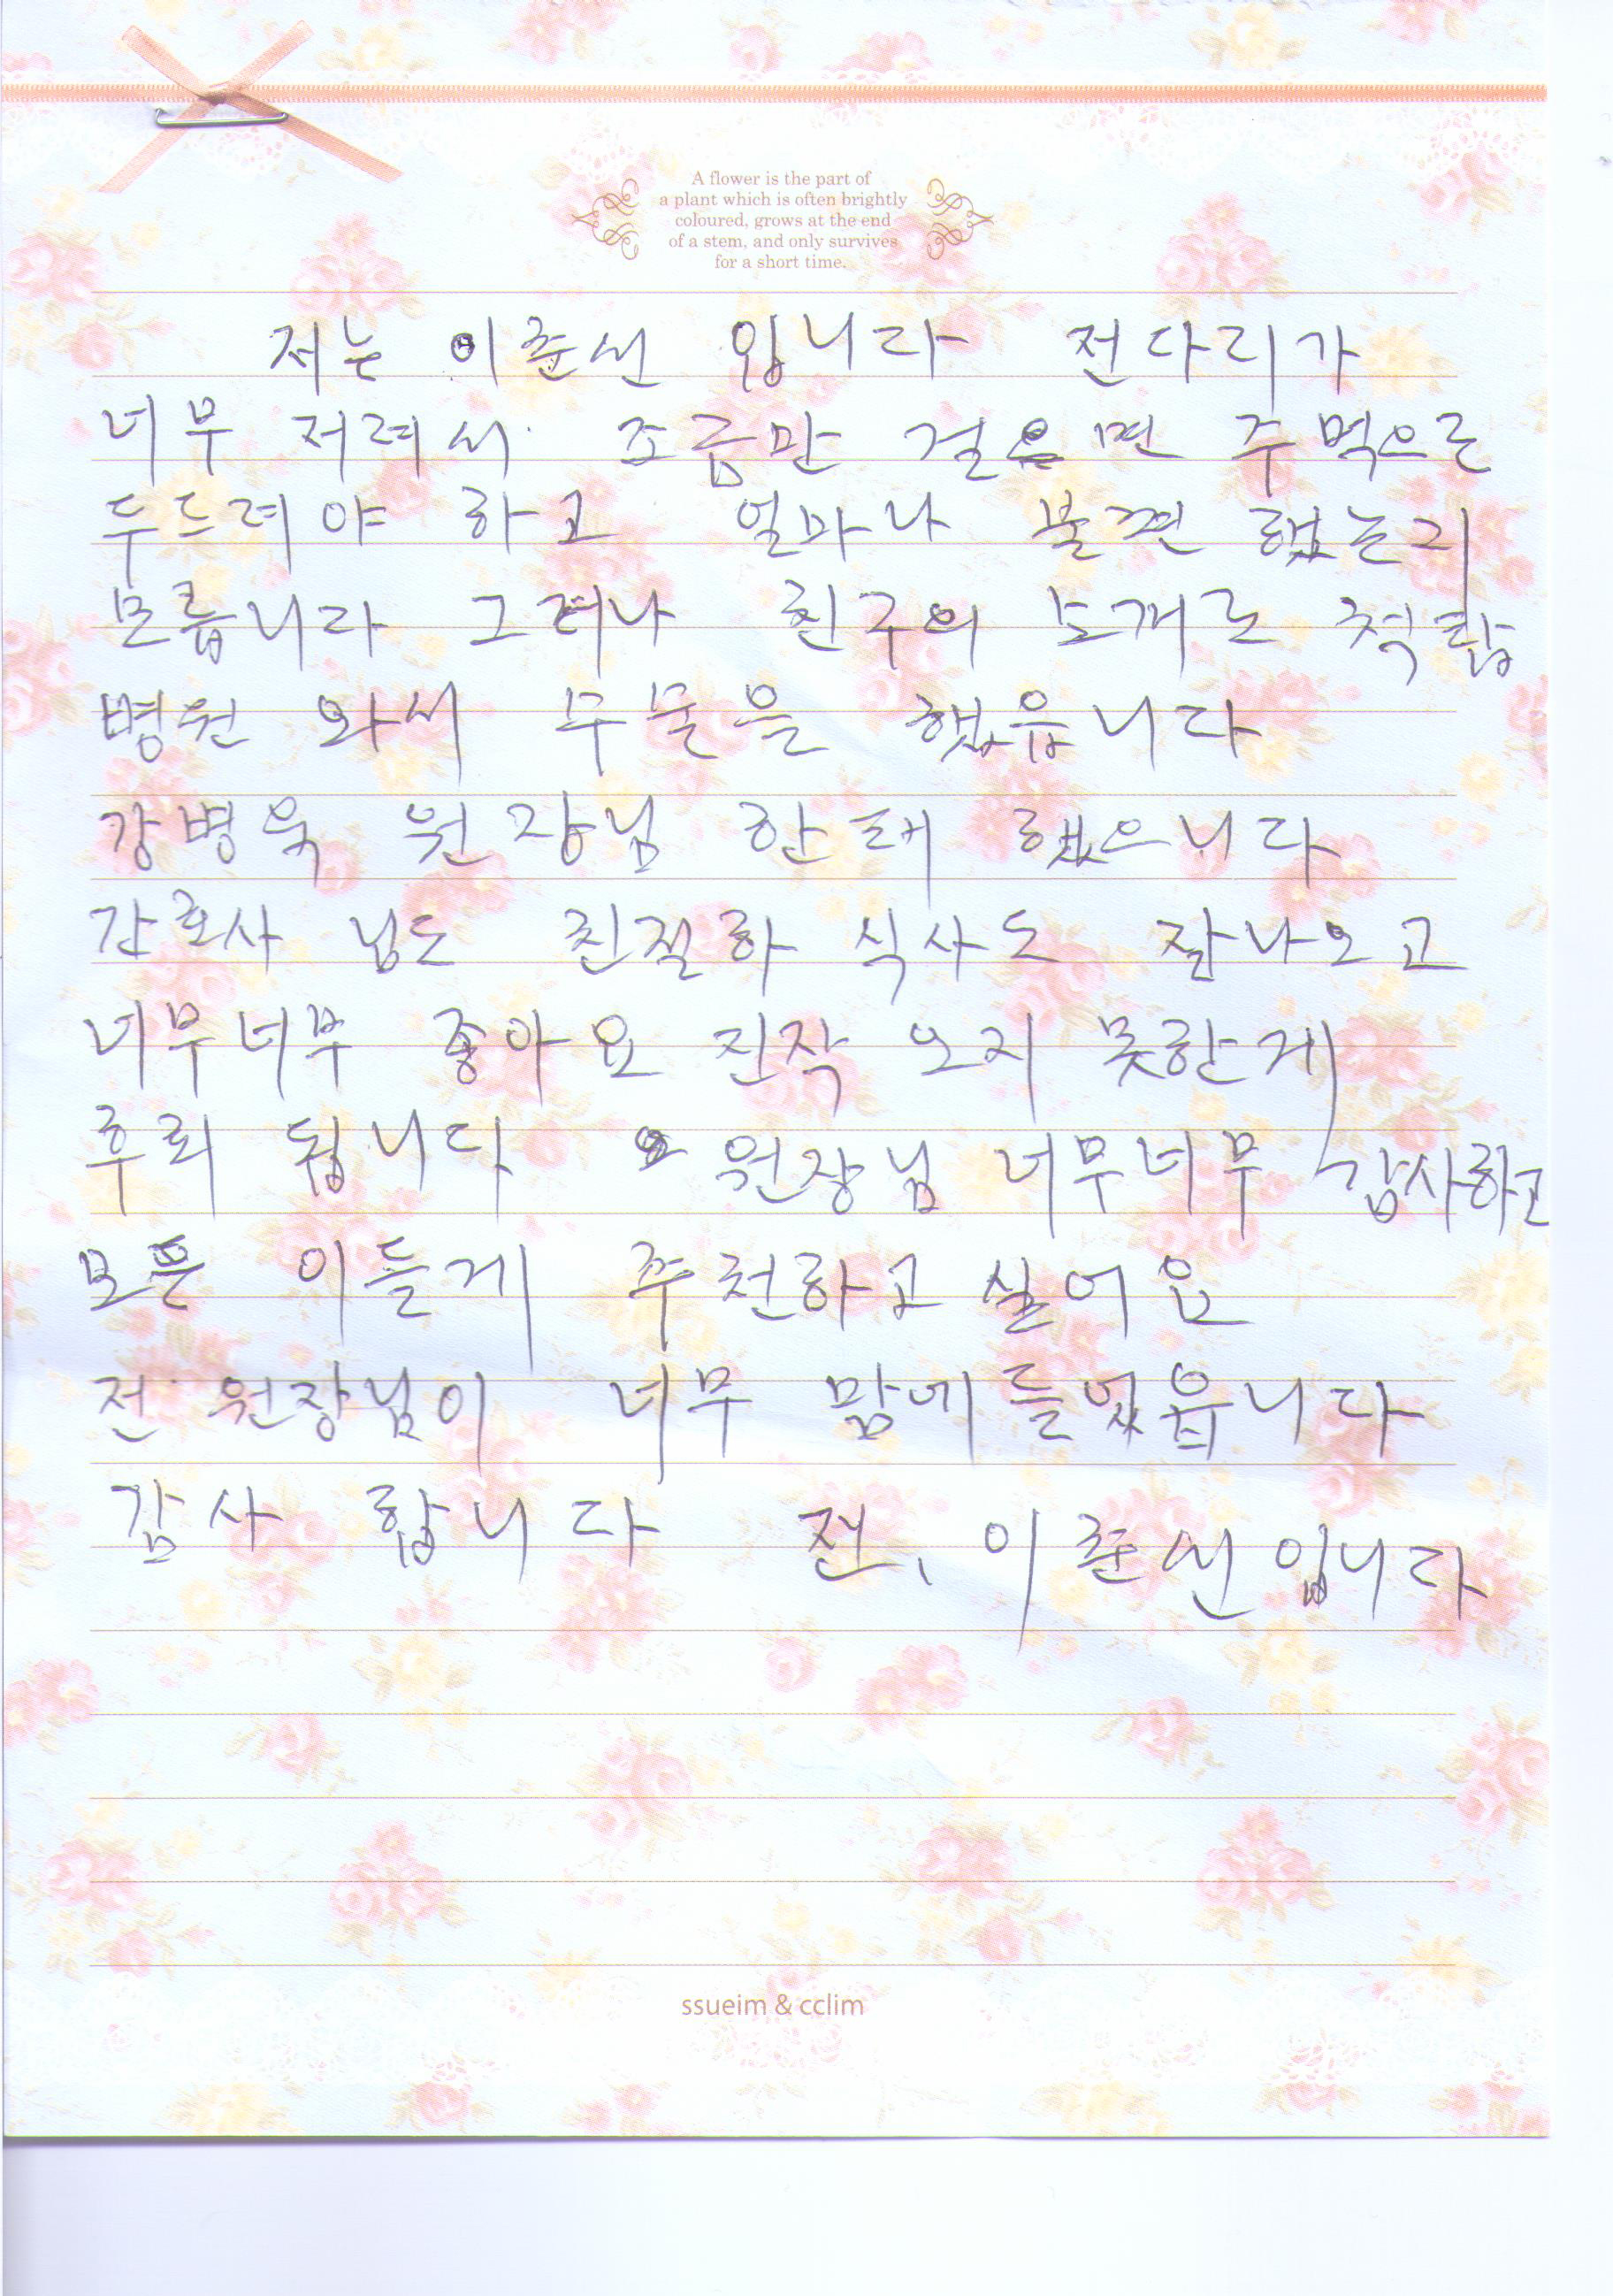 A flower is the part of
a plant which is often brightly
coloured, grows at the end
of a stem, and only survives
for a short time.
저는 이춘선 입니다 전다리가
너무 저려서 조금만 걸으면 주먹으로
두드려야 하고 얼마나 불편 했는지
모릅니다 그러나 친구의 소개로 척탑
병원 와서 수술을 했읍니다
강병욱 원장님 한테 했으니다
간호사 님도 친절하 식사도 잘나오고
너무너무 좋아요 진작 오지 못한게
후회 됩니다 원장님 너무너무 감사하고
모든 이들게 추천하고 싶어요
전 원장님이 너무 맘에 들었읍니다
감사 합니다 전, 이춘선입니다
ssueim & cclim